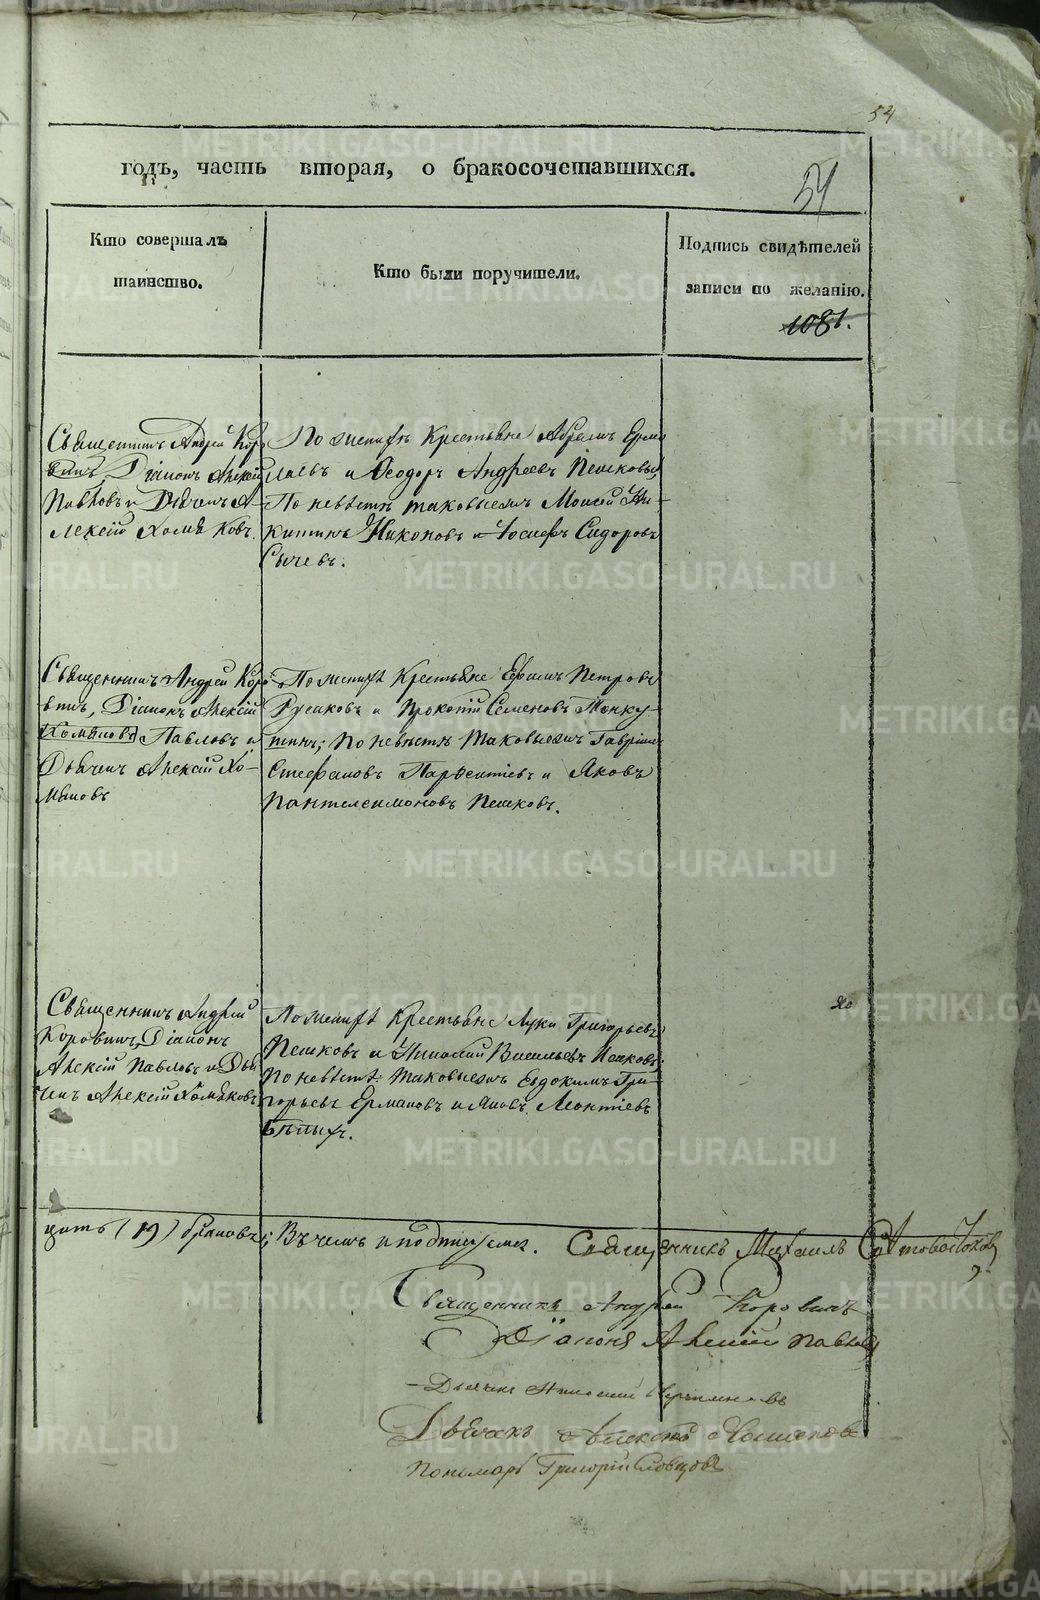 54
годъ, часть вторая, о бракосочетавшихся.
54
Кто совершалъ
таинство.
Кто были поручители.
Подпись свидѣтелей
записи по желанію.
1081.
Священникъ Андрей Коро
винъ, Діаконъ Алексѣй
Павловъ и Дьячекъ А-
лексѣй Хомяковъ.
По женихѣ Крестьяне Абрамъ Ермо
лаевъ и Ѳеодоръ Андреевъ Пешковы,
По невѣстѣ таковыежъ Моисей Ни-
китинъ Никоновъ и Іосифъ Сидоровъ
Сычевъ.
Священникъ Андрей Коро-
винъ, Діаконъ Алексѣй
Хомяковъ Павловъ и
Дьячекъ Алексѣй Хо-
мяковъ
По женихѣ Крестьяне Ефимъ Петровъ
Русаковъ и Прокопій Семеновъ Тонку-
шинъ; По невѣстѣ таковыежъ Гаврiилъ
Стефановъ Парѳентіевъ и Яковъ
Пантелеимоновъ Пешковъ.
Священникъ Андрей
Коровинъ, Діаконъ
Алексѣй Павловъ и Дья
чекъ Алексѣй Хомяковъ
По женихѣ Крестьяне Лука Григорьевъ
Пешковъ и Николай Васильевъ Пешковъ
По невѣстѣ таковыежъ Евдокимъ Гри-
горьевъ Ермаковъ и Яковъ Леонтіевъ
Бѣлыхъ.
цать (19) браковъ; Въ чемъ и подписуемся. Священникъ Михаилъ
Священникъ Андрей Коровинъ
Діаконъ Алексѣй Павловъ
Дьячекъ Николай
Дьячекъ Алексѣй Хомяковъ
Пономарь Григорій Словцовъ
METRIKI.GASO-URAL.RU